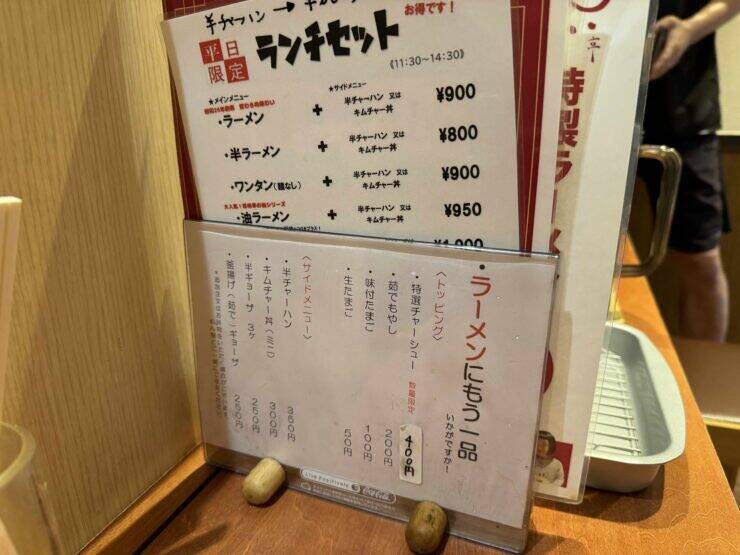 半チャーハン →
お得です！
平日限定
ランチセット
(11:30～14:30)
★メインメニュー
★サイドメニュー
・ラーメン + 半チャーハン 又は キムチャー丼 ¥900
・半ラーメン + 半チャーハン 又は キムチャー丼 ¥800
・ワンタン(麺なし) + 半チャーハン 又は キムチャー丼 ¥900
・油ラーメン + 半チャーハン 又は キムチャー丼 ¥950
¥1,000
特製ラーメ
・ラーメンにもう一品
いかがですか！
〈トッピング〉
特選チャーシュー 数量限定 400円
・茹でもやし 200円
・味付たまご 100円
・生たまご 50円
〈サイドメニュー〉
・半チャーハン 350円
・キムチャー丼(ミニ) 300円
・半ギョーザ 3ヶ 250円
・釜揚げ(茹で)ギョーザ 250円
Live Positively